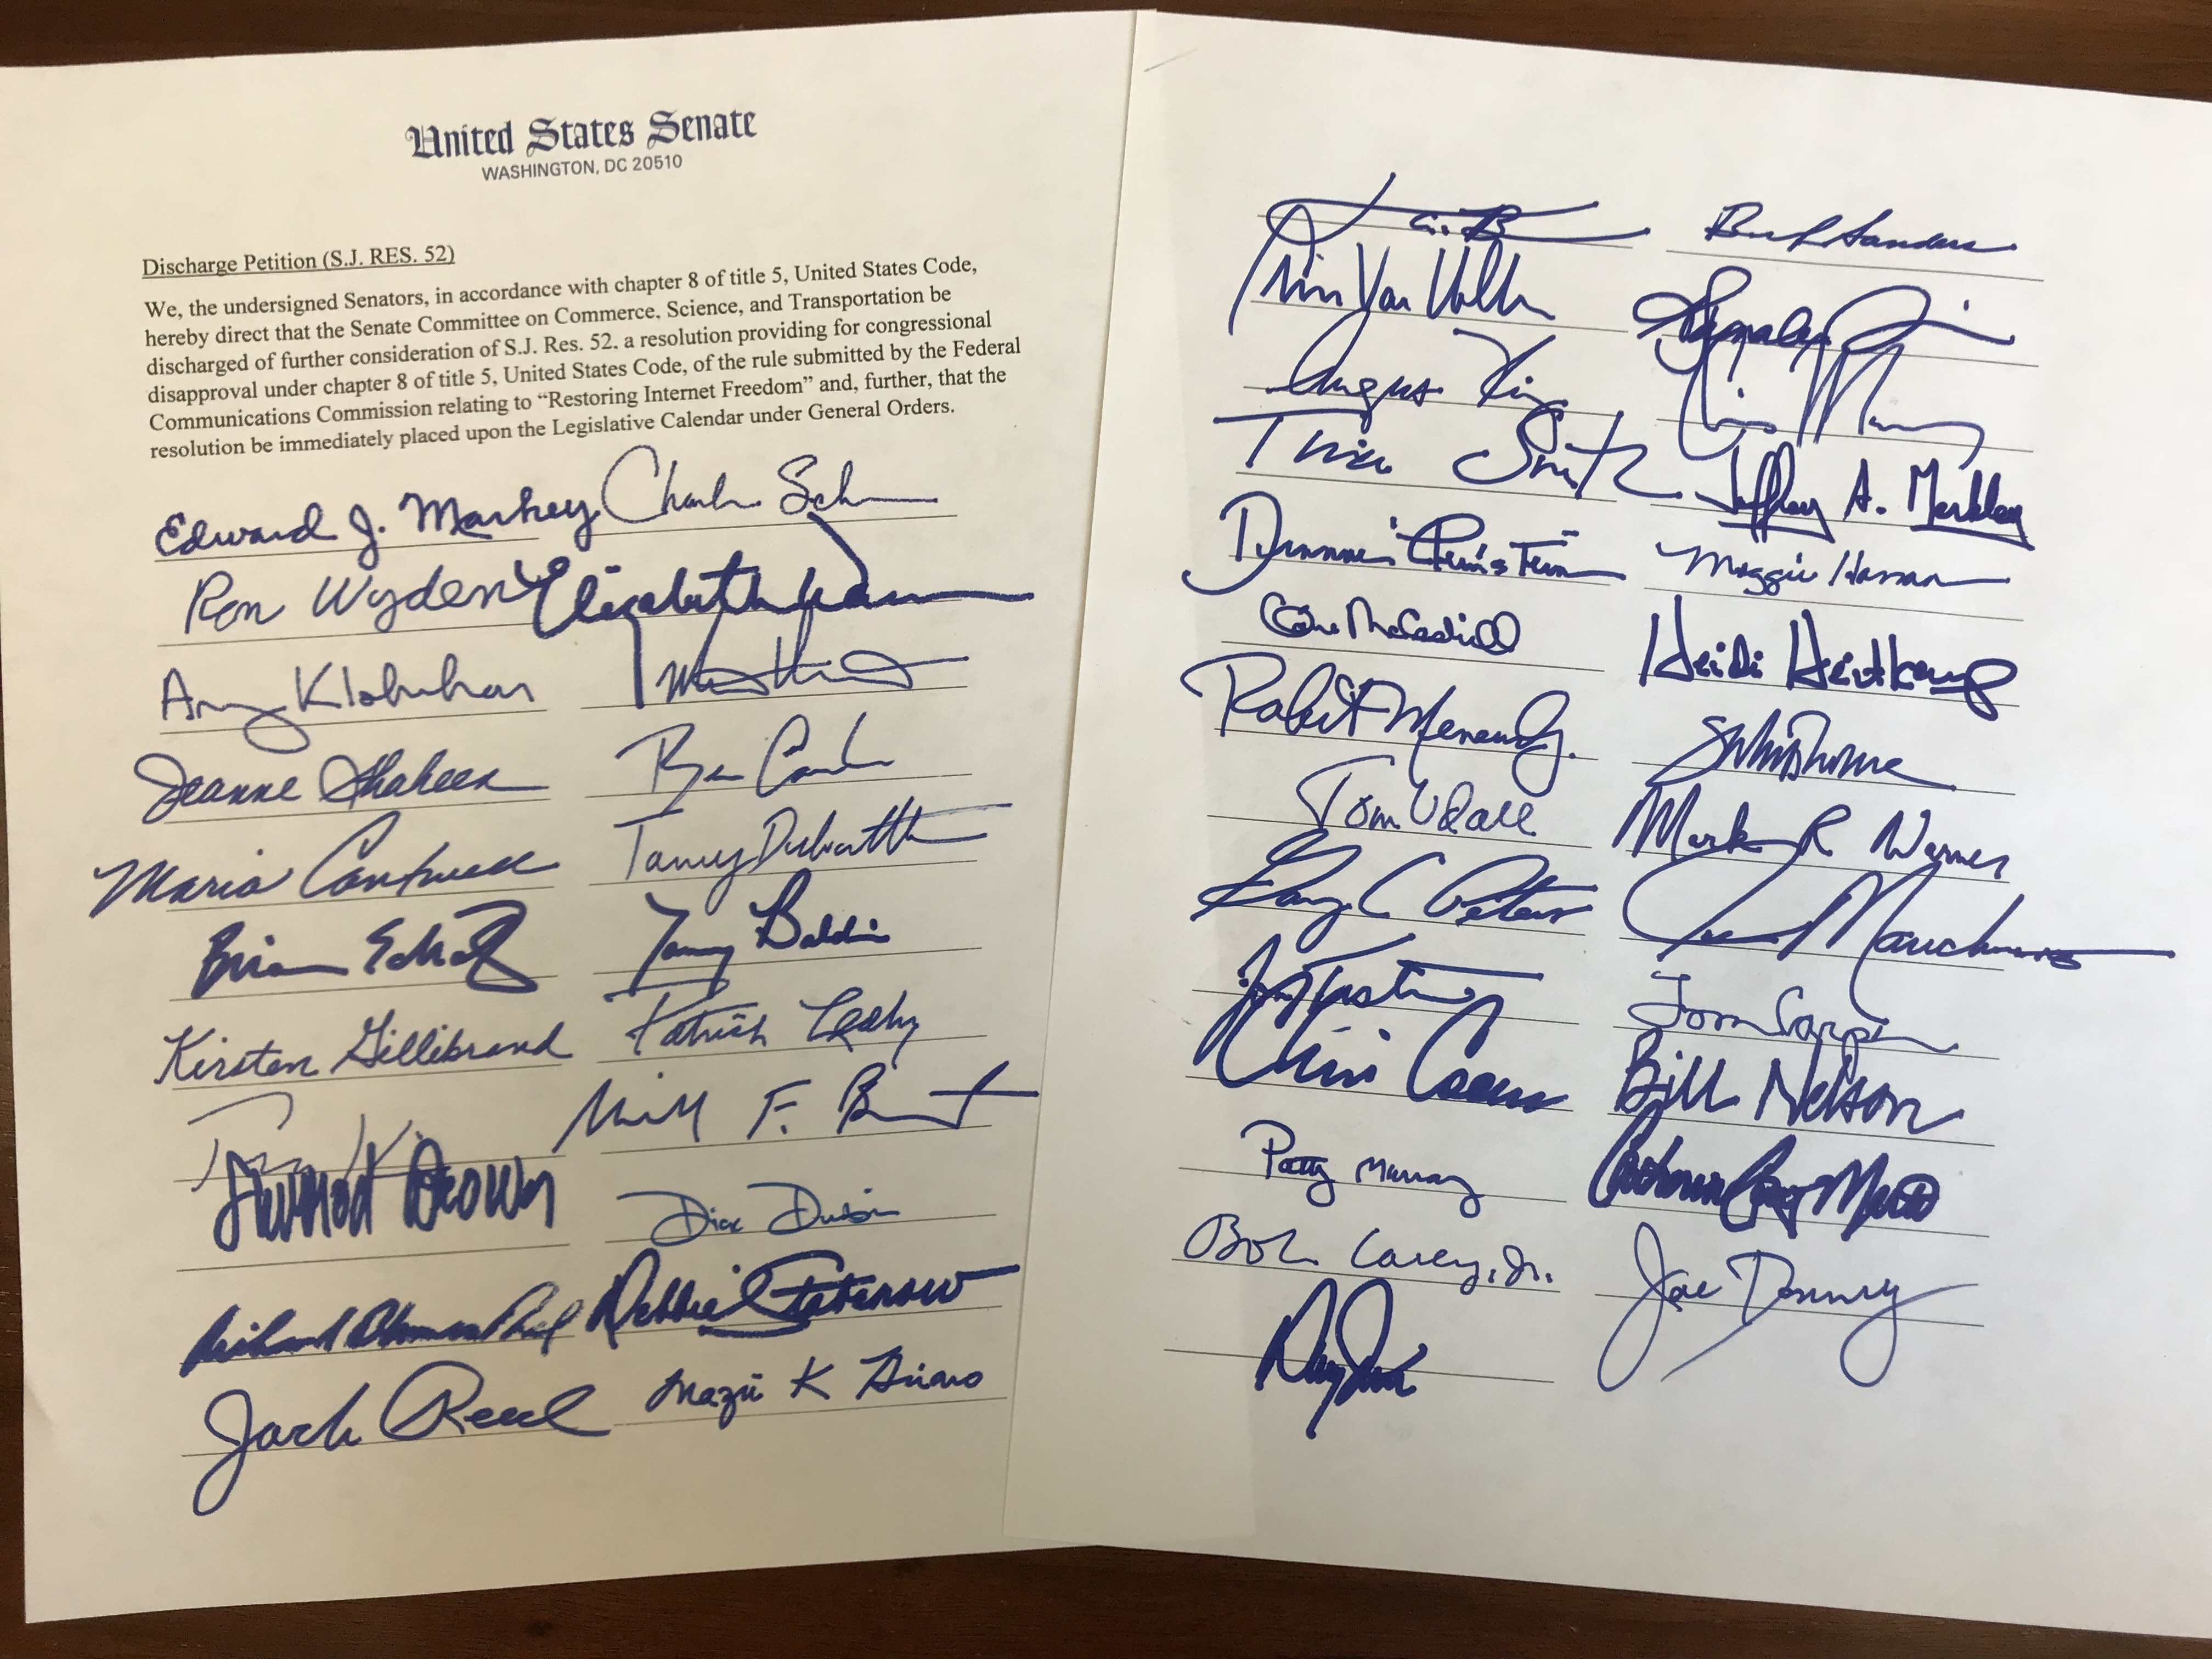 United States Senate
WASHINGTON, DC 20510
Discharge Petition (S.J. RES. 52)
We, the undersigned Senators, in accordance with chapter 8 of title 5, United States Code,
hereby direct that the Senate Committee on Commerce, Science, and Transportation be
discharged of further consideration of S.J. Res. 52, a resolution providing for congressional
disapproval under chapter 8 of title 5, United States Code, of the rule submitted by the Federal
Communications Commission relating to “Restoring Internet Freedom” and, further, that the
resolution be immediately placed upon the Legislative Calendar under General Orders.
Edward J. Markey
Ron Wyden Elizabeth
Amy Klobuchar
Jeanne Shaheen Ben
Maria Cantwell Tammy Duckworth
Brian Schatz Tammy Baldwin
Kirsten Gillibrand Patrick Leahy
F.
Sherrod Brown Dick Durbin
Richard Blumenthal Debbie Stabenow
Jack Reed Mazie K Hirono
Sanders
Chris Van Hollen
Angus King Chris Murphy
Tina Smith Jeffrey A. Merkley
Dianne Feinstein Maggie Hassan
Claire McCaskill Heidi Heitkamp
Robert Menendez
Tom Udall Mark R Warner
Gary C Peters Joe Manchin
Jon Tester Tom Carper
Chris Coons Bill Nelson
Patty Murray Catherine Cortez Masto
Bob Casey, Jr. Joe Donnelly